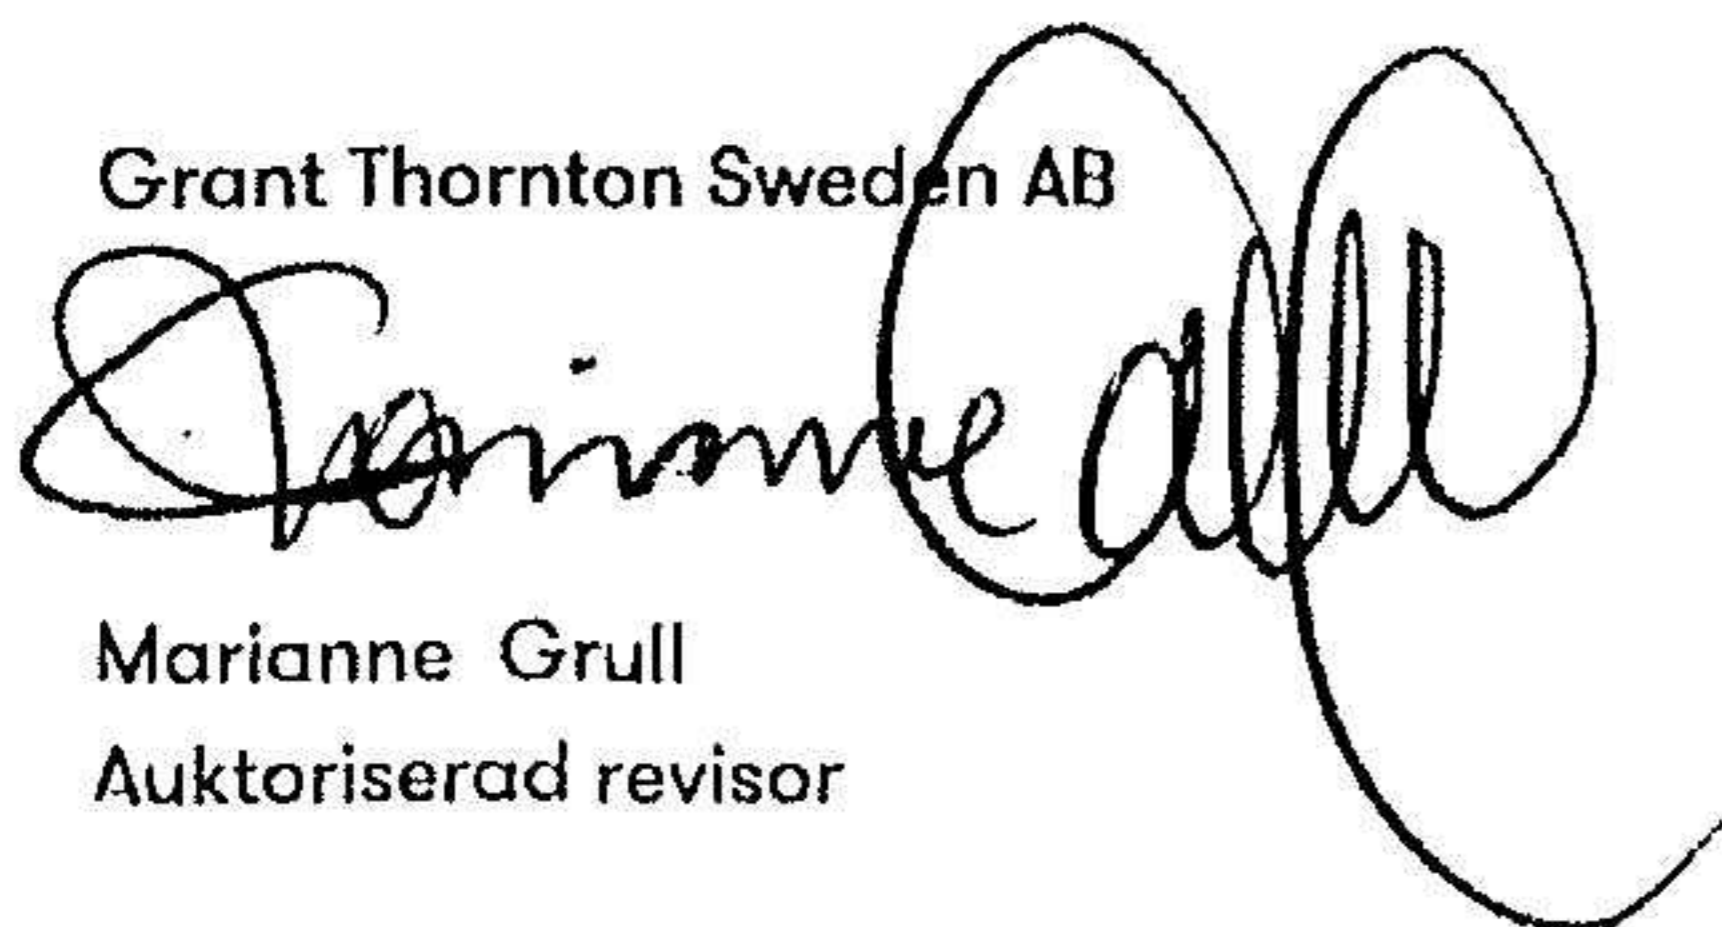 Grant Thornton Sweden AB
Marianne Grull
Auktoriserad revisor